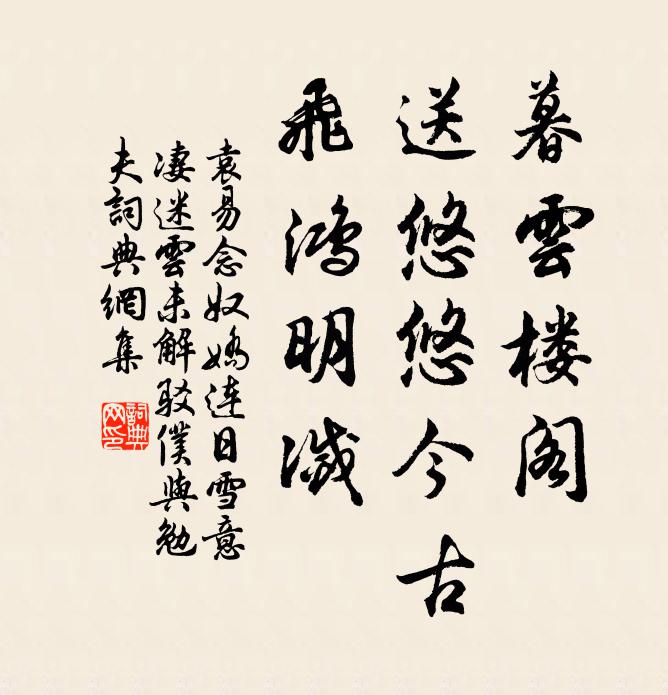 暮雲楼阁
送悠悠今古
飛鴻明滅
袁易念奴嬌連日雪意
凄迷雲未解駁僕與勉
夫詞典網集
詞典
网印